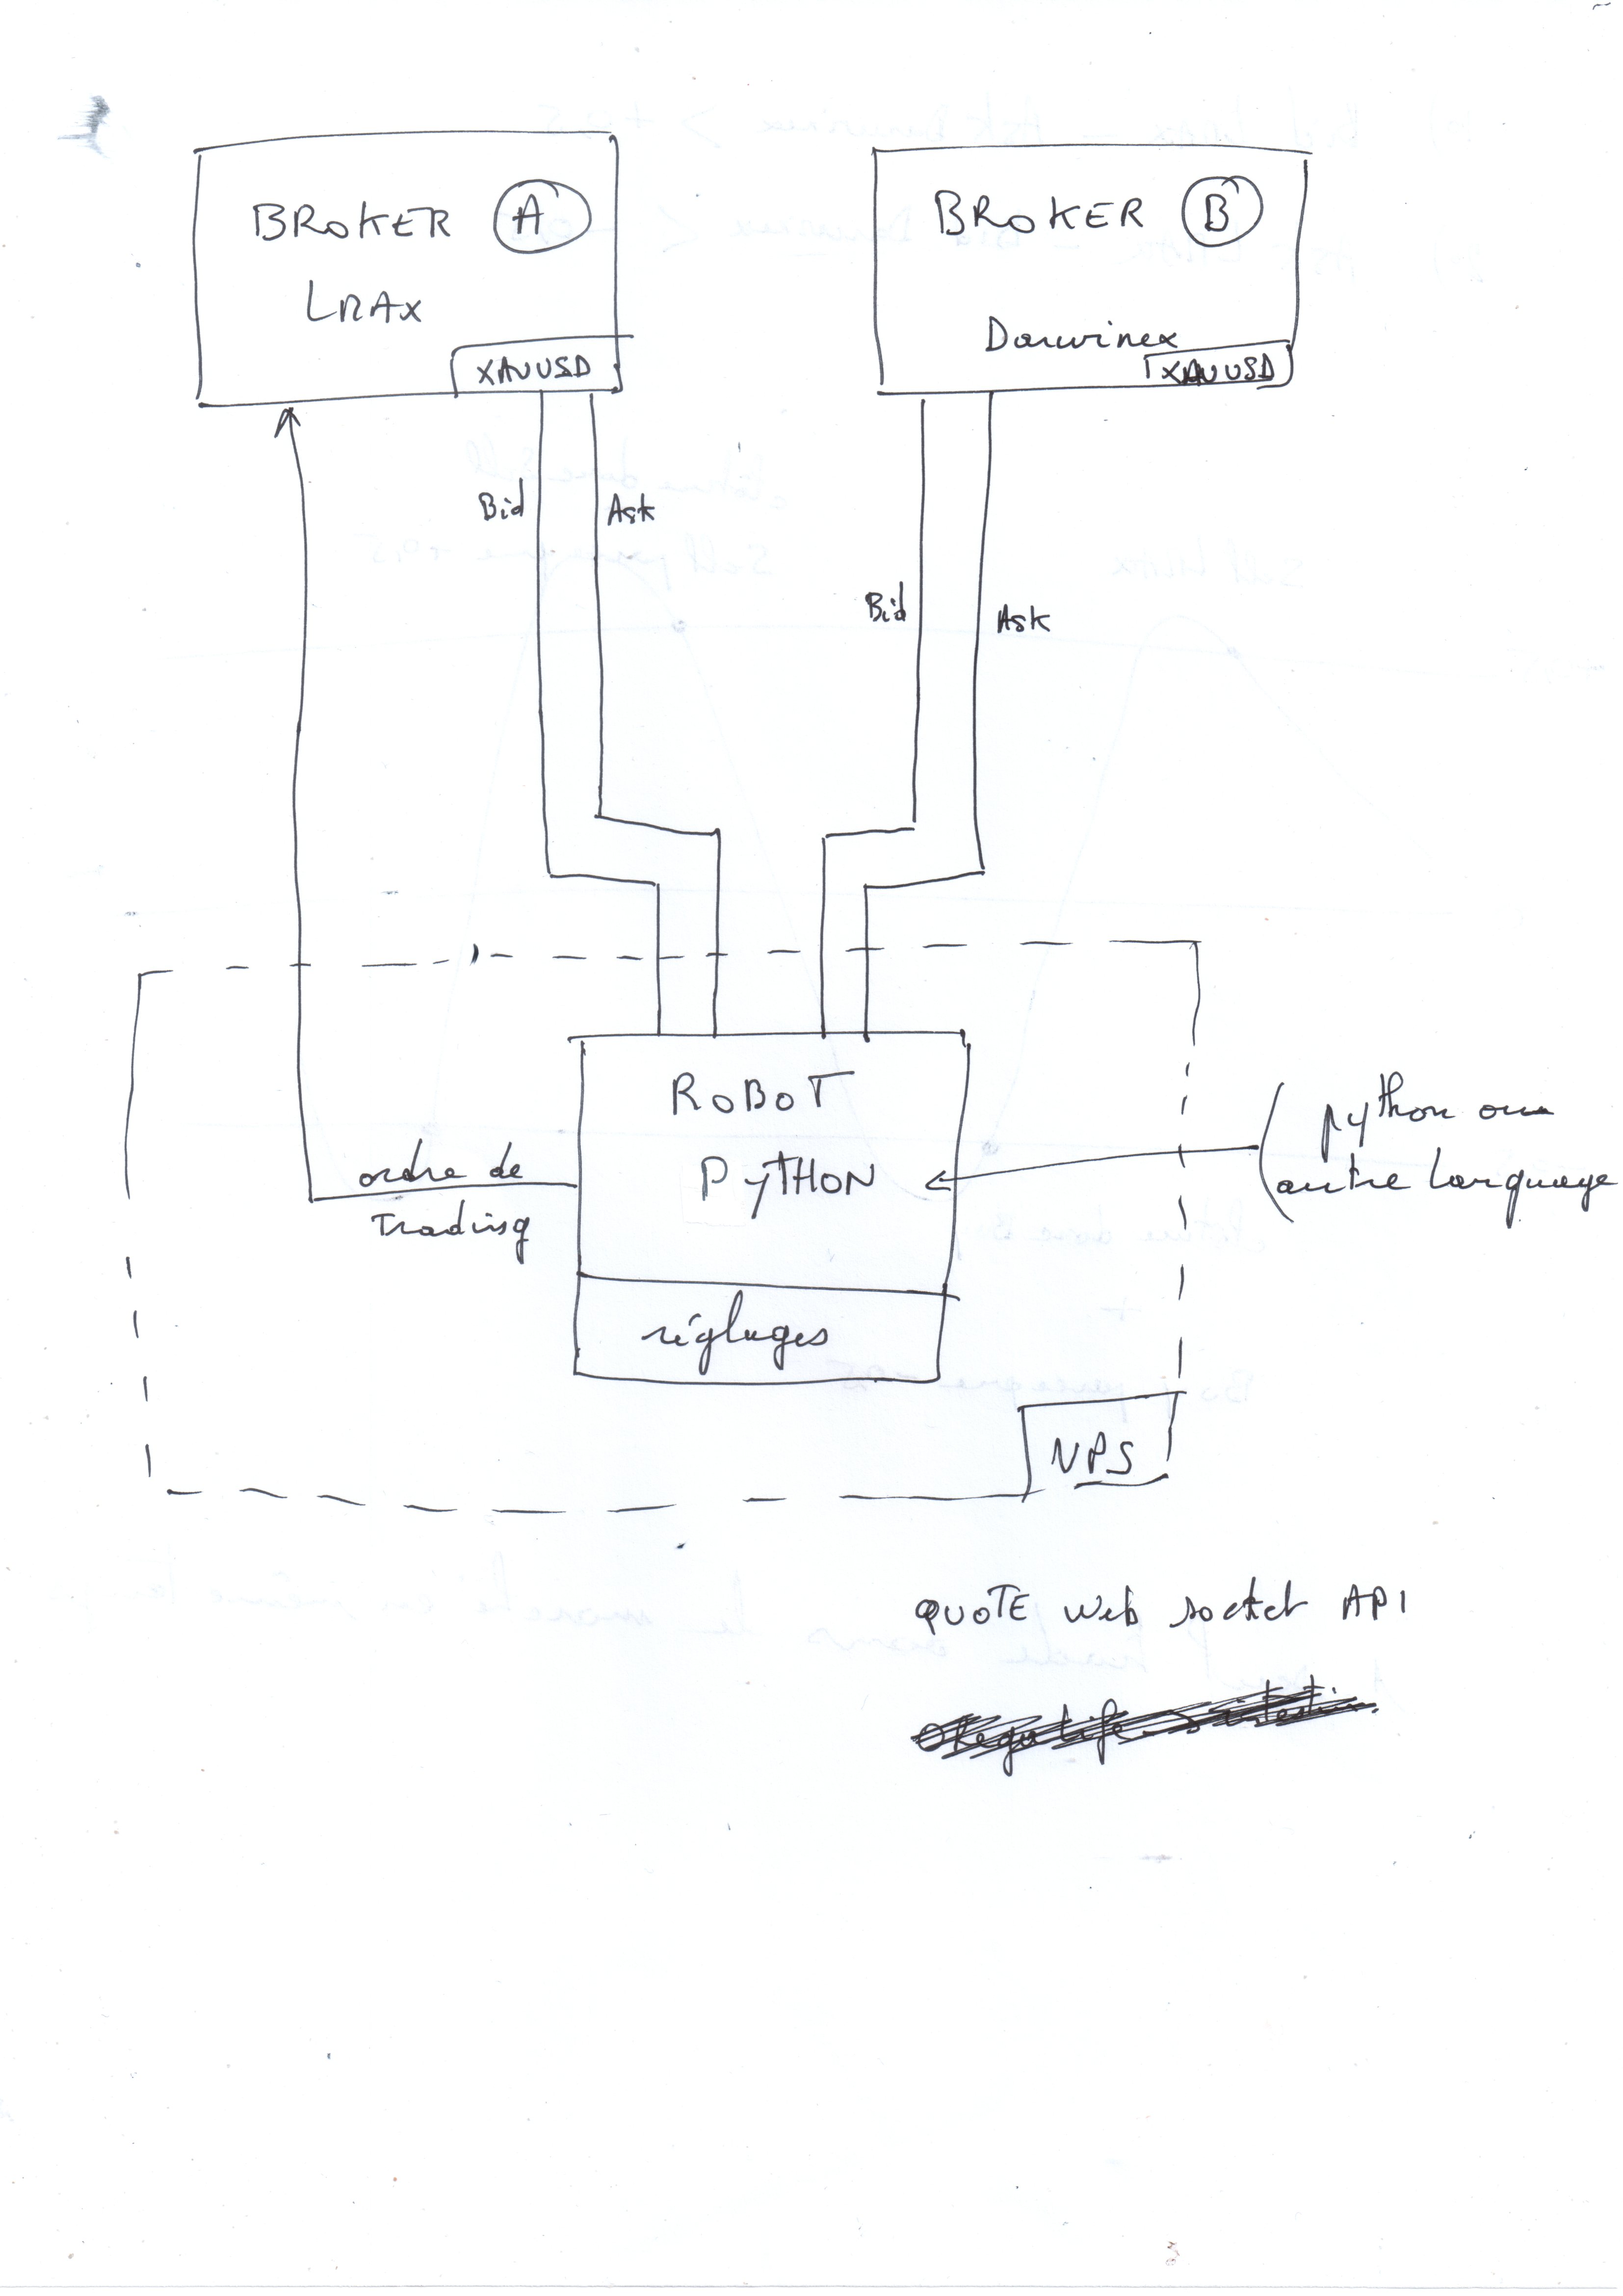 BROKER A
LMAX
XAUUSD
BROKER B
Darwinex
XAUUSD
Bid
Ask
Bid
Ask
ROBOT
PYTHON
réglages
ordre de
Trading
python ou
autre language
VPS
QUOTE Web socket API